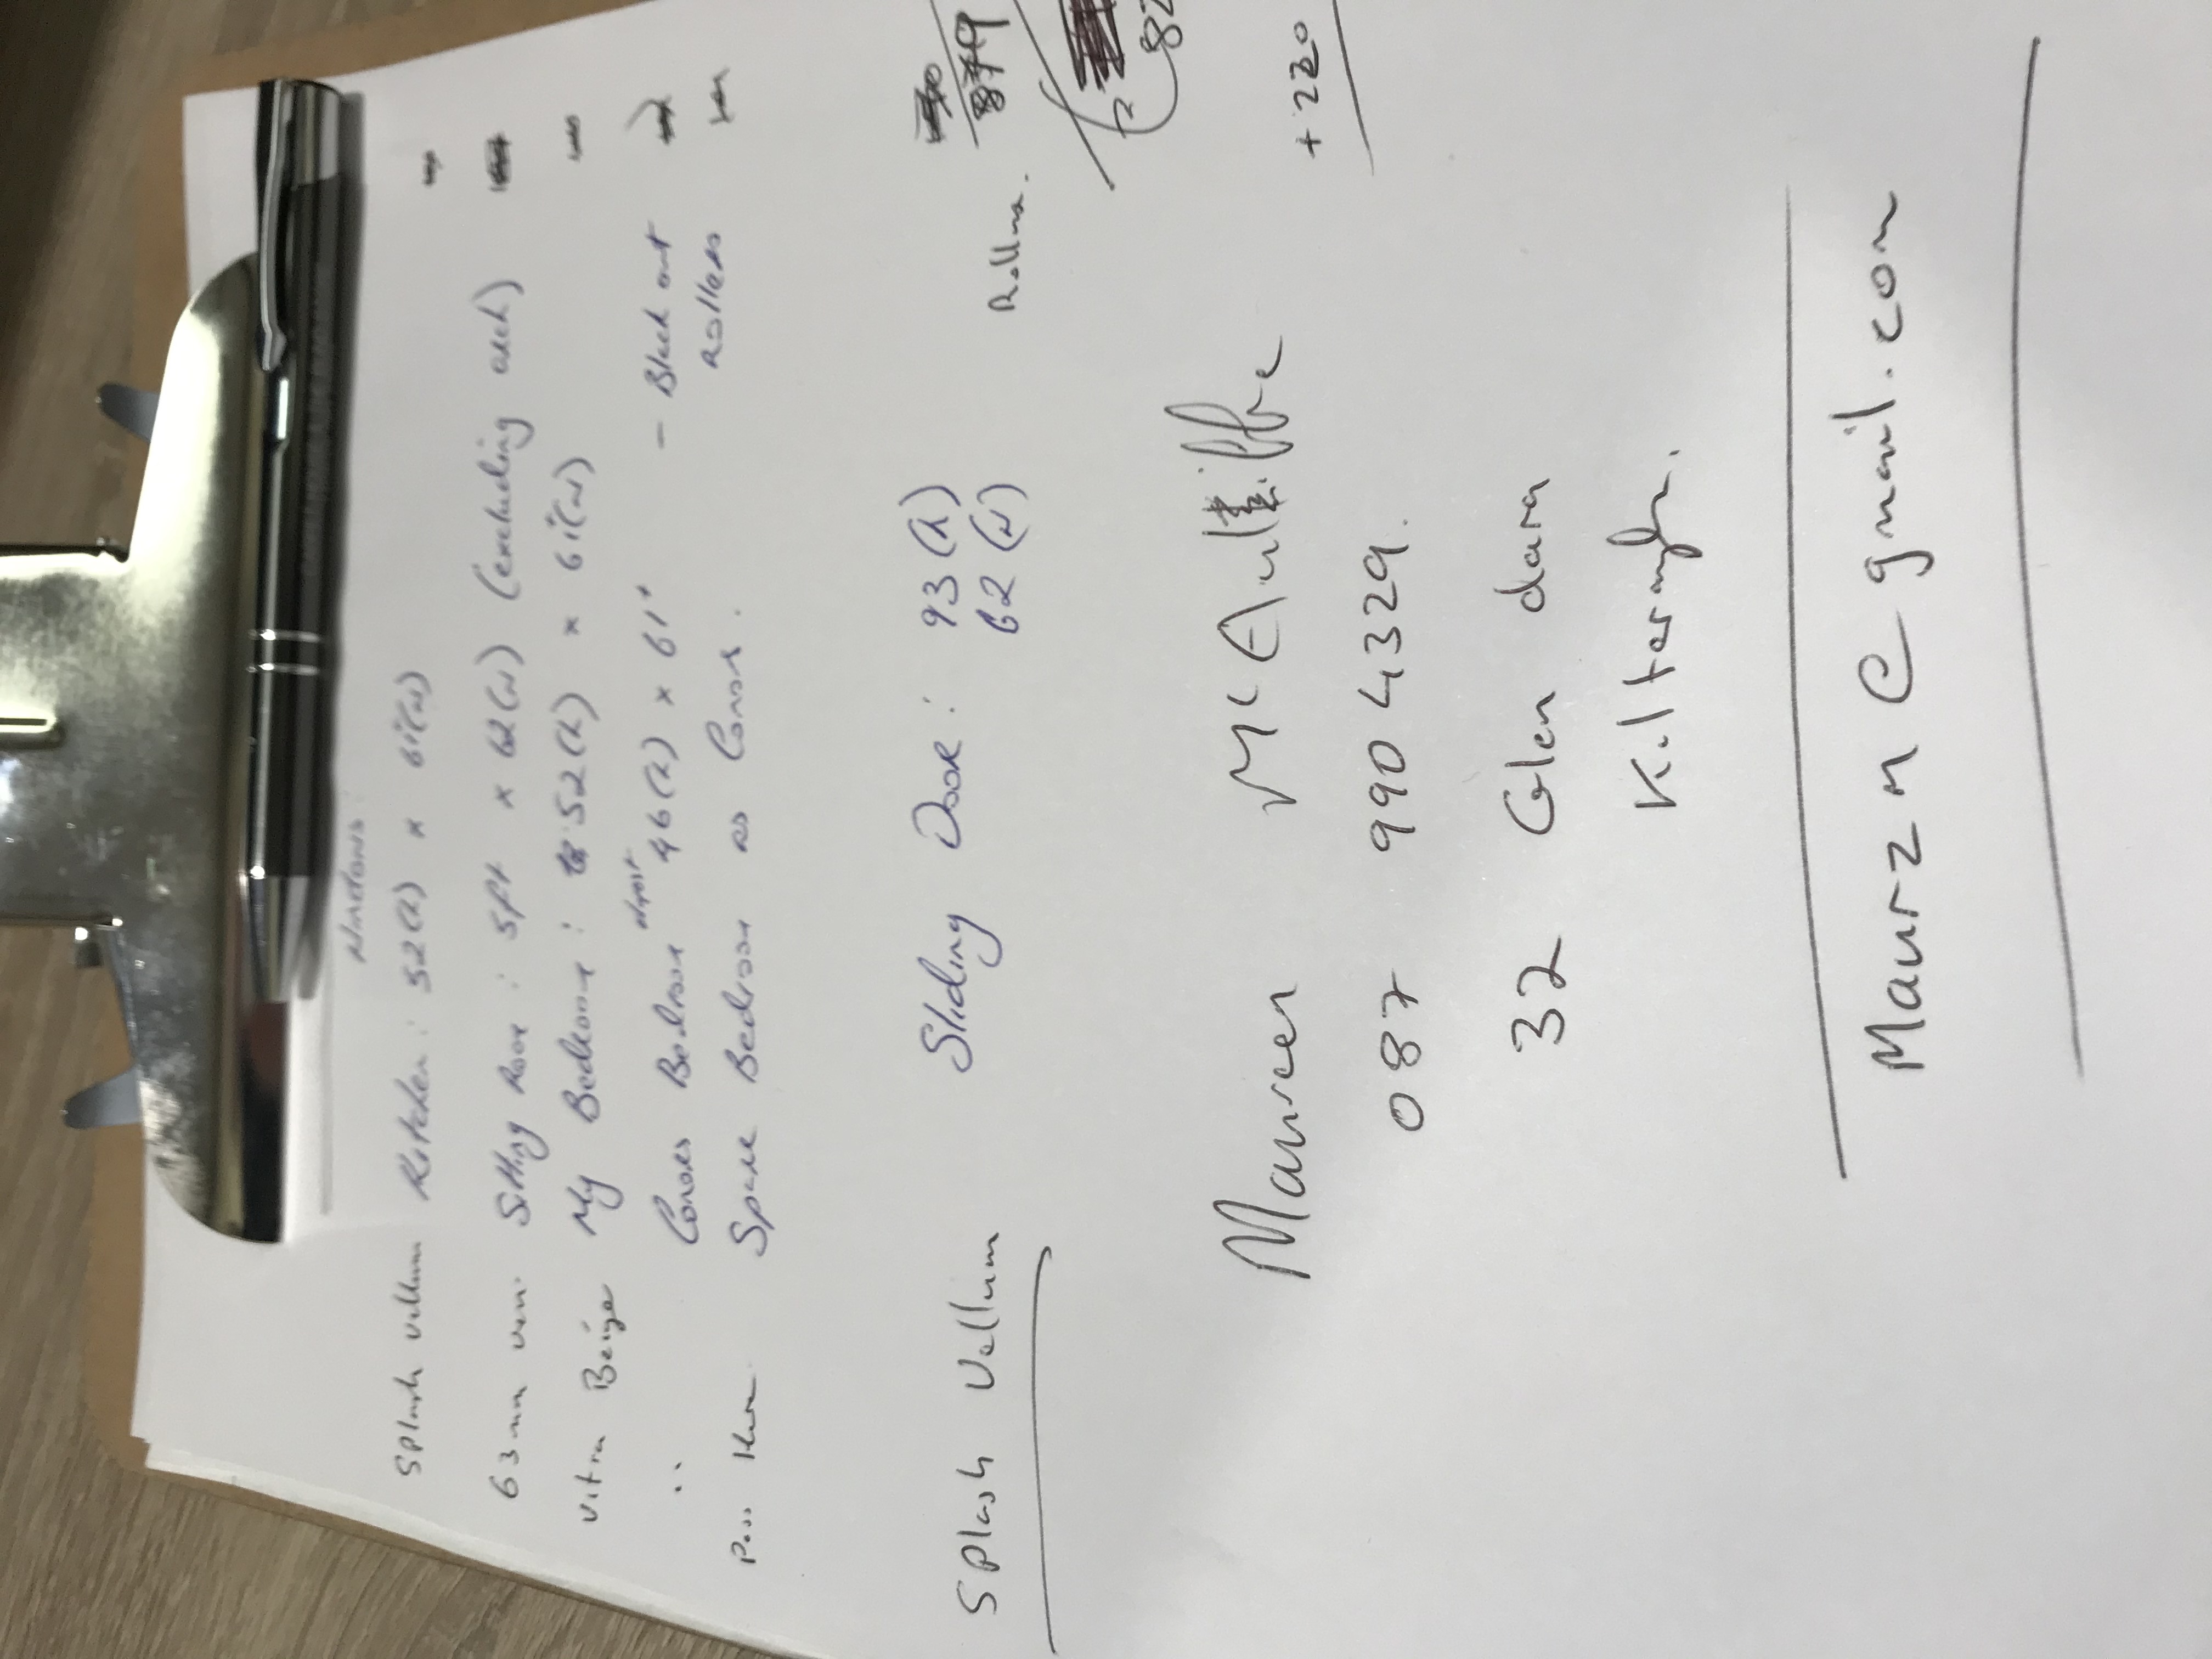 Windows:
Splash Vellum Kitchen: 52(h) x 61(w)
63mm Ven Sitting Room: 5ft x 62(w) (excluding arch)
Vitra Beige My Bedroom: 52(h) x 61(w)
" Conors Bedroom 46(h) x 61" - Black out
Spare Bedroom as Conor. Rollers
Splash Vellum Sliding Door: 93(h)
62(w) Roller.
Maureen McAuliffe
+220
087 9904329.
32 Glen dara
Kilternagh.
Maurzm@gmail.com